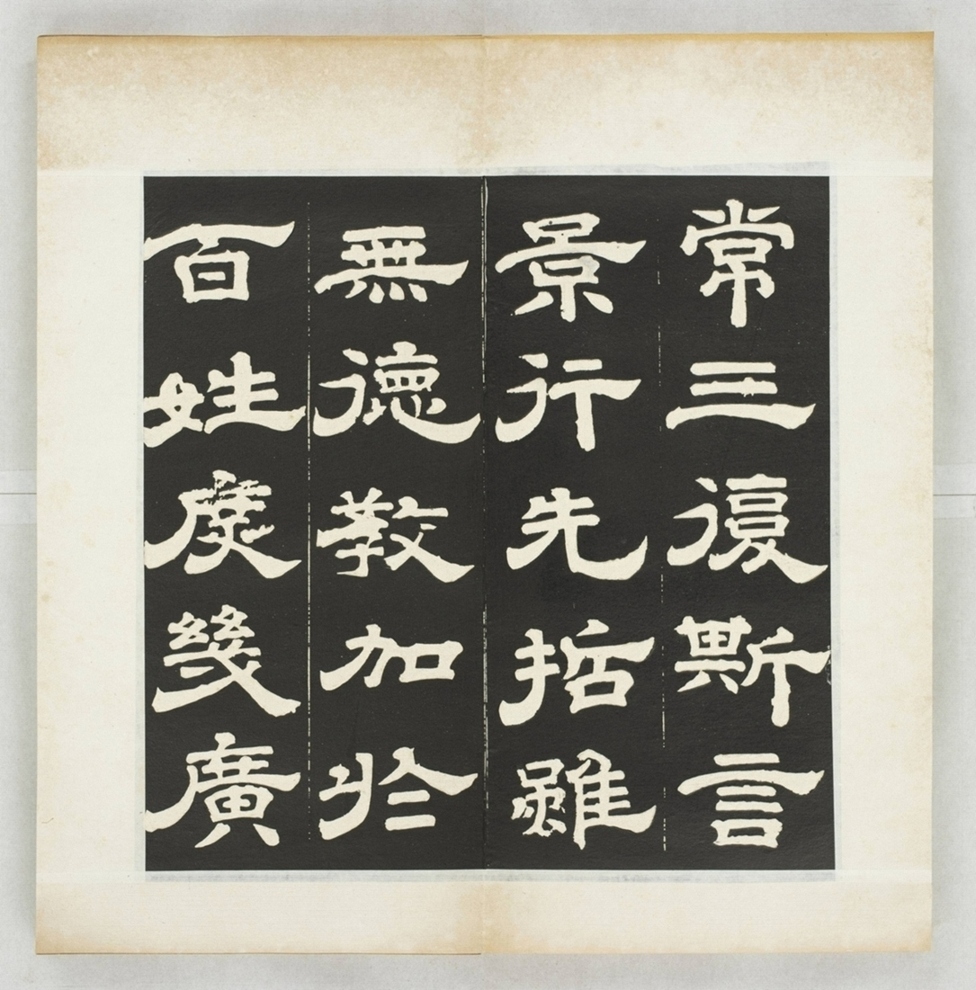 常三復斯言
景行先哲雖
無德教加於
百姓庶幾廣